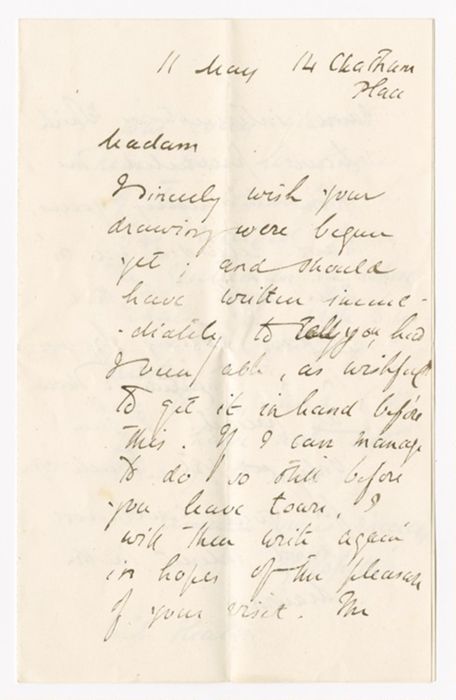 11 May 14 Chatham
Place
Madam
I sincerely wish your
drawing were begun
yet; and should
have written imme-
-diately to tell you, had
I been able, as wishful
to get it in hand before
this. If I can manage
to do so still before
you leave town, I
will then write again
in hopes of the pleasure
of your visit. The